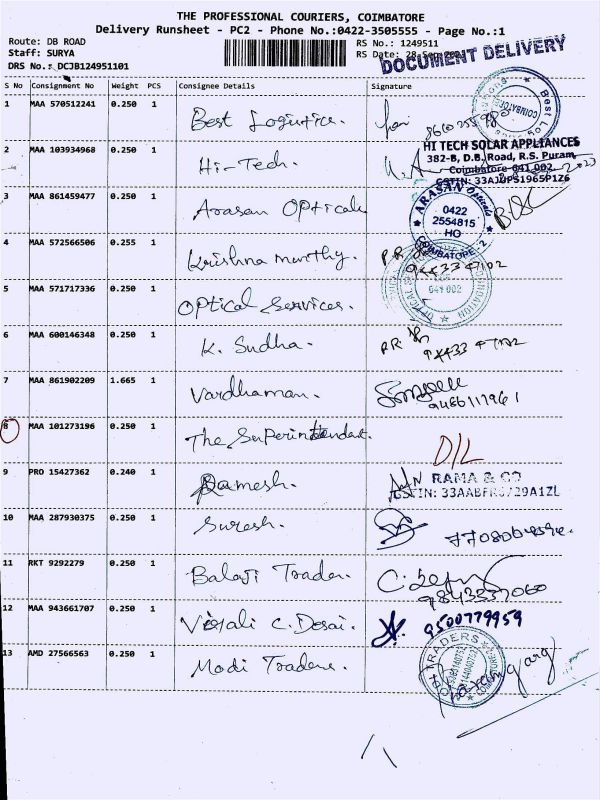 THE PROFESSIONAL COURIERS, COIMBATORE
Delivery Runsheet - PC2 - Phone No.:0422-3505555 - Page No.:1
Route: DB ROAD
Staff: SURYA
DRS No.: DCJB124951101
RS No.: 1249511
RS Date: 28-Sep
DOCUMENT DELIVERY
S No Consignment No Weight PCS Consignee Details Signature
1 MAA 570512241 0.250 1 Best Logistics.
COIMBATORE
2 MAA 103934968 0.250 1 Hi-Tech.
HI TECH SOLAR APPLIANCES
382-B, D.B. Road, R.S. Puram,
Coimbatore-641 002
GSTIN: 33AJUPS1965P1Z6
3 MAA 861459477 0.250 1 Arasan Opticals
ARASAN Opticals
0422
2554815
HO
COIMBATORE-2
4 MAA 572566506 0.255 1 Krishna murthy.
P.R.
94433 47102
5 MAA 571717336 0.250 1 Optical Services.
641 002
6 MAA 600146348 0.250 1 K. Sudha.
P.R.
94433 47102
7 MAA 861902209 1.665 1 Vardhaman.
9486111961
8 MAA 101273196 0.250 1 The Superintendant.
D/L
9 PRO 15427362 0.240 1 Ramesh.
RAMA & CO
10 MAA 287930375 0.250 1 Suresh.
11 RKT 9292279 0.250 1 Balaji Traders.
9843337060
12 MAA 943661707 0.250 1 Vaisali C. Desai.
9500779959
13 AMD 27566563 0.250 1 Modi Traders.
TRADERS